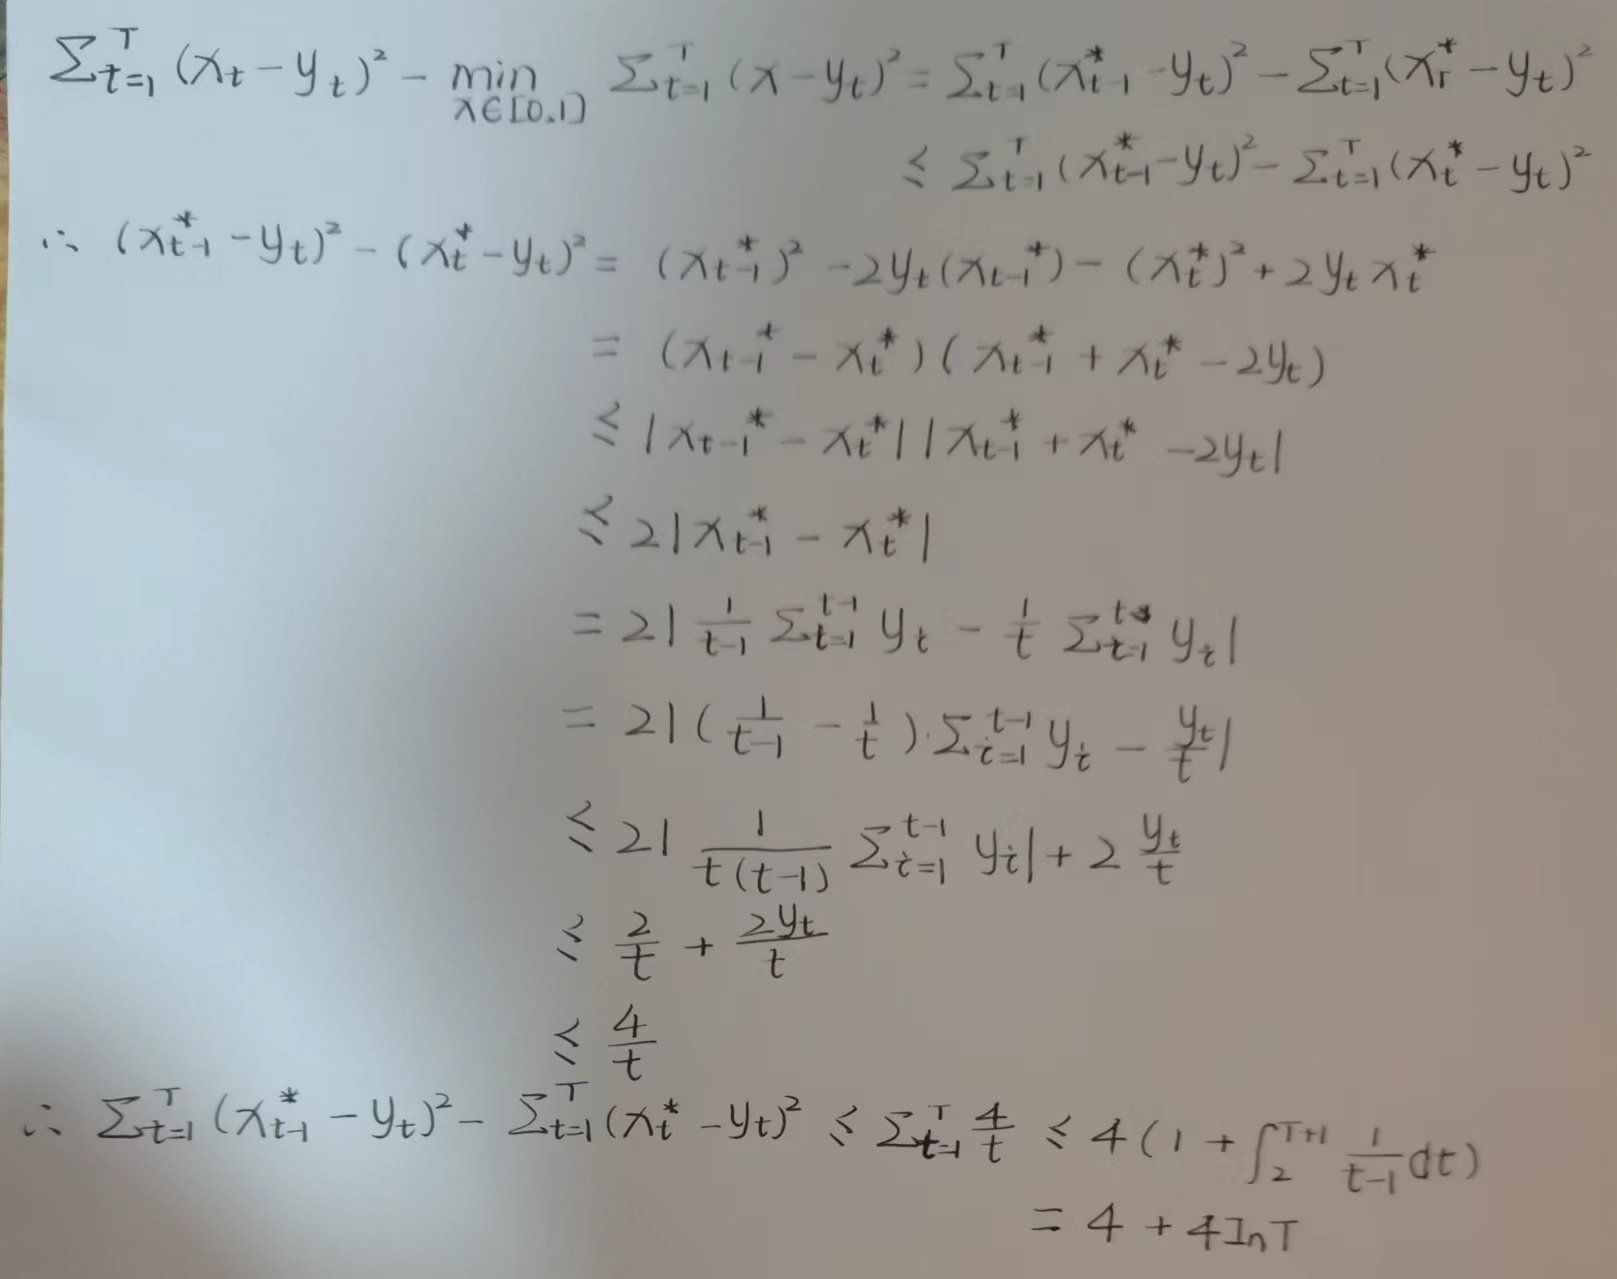 Σ_{t=1}^{T} (x_t − y_t)² − min_{x∈[0,1]} Σ_{t=1}^{T} (x − y_t)² = Σ_{t=1}^{T} (x_{t-1}^* − y_t)² − Σ_{t=1}^{T} (x_T^* − y_t)²
≤ Σ_{t=1}^{T} (x_{t-1}^* − y_t)² − Σ_{t=1}^{T} (x_t^* − y_t)²
∴ (x_{t-1}^* − y_t)² − (x_t^* − y_t)² = (x_{t-1}^*)² − 2y_t(x_{t-1}^*) − (x_t^*)² + 2y_t x_t^*
= (x_{t-1}^* − x_t^*)(x_{t-1}^* + x_t^* − 2y_t)
≤ |x_{t-1}^* − x_t^*||x_{t-1}^* + x_t^* − 2y_t|
≤ 2|x_{t-1}^* − x_t^*|
= 2|1/(t-1) Σ_{t=1}^{t-1} y_t − 1/t Σ_{t=1}^{t} y_i|
= 2|(1/(t-1) − 1/t)·Σ_{i=1}^{t-1} y_i − y_t/t|
≤ 2|1/(t(t-1)) Σ_{i=1}^{t-1} y_i| + 2 y_t/t
≤ 2/t + 2y_t/t
≤ 4/t
∴ Σ_{t=1}^{T} (x_{t-1}^* − y_t)² − Σ_{t=1}^{T} (x_t^* − y_t)² ≤ Σ_{t=1}^{T} 4/t ≤ 4(1 + ∫_2^{T+1} 1/(t-1) dt)
= 4 + 4InT